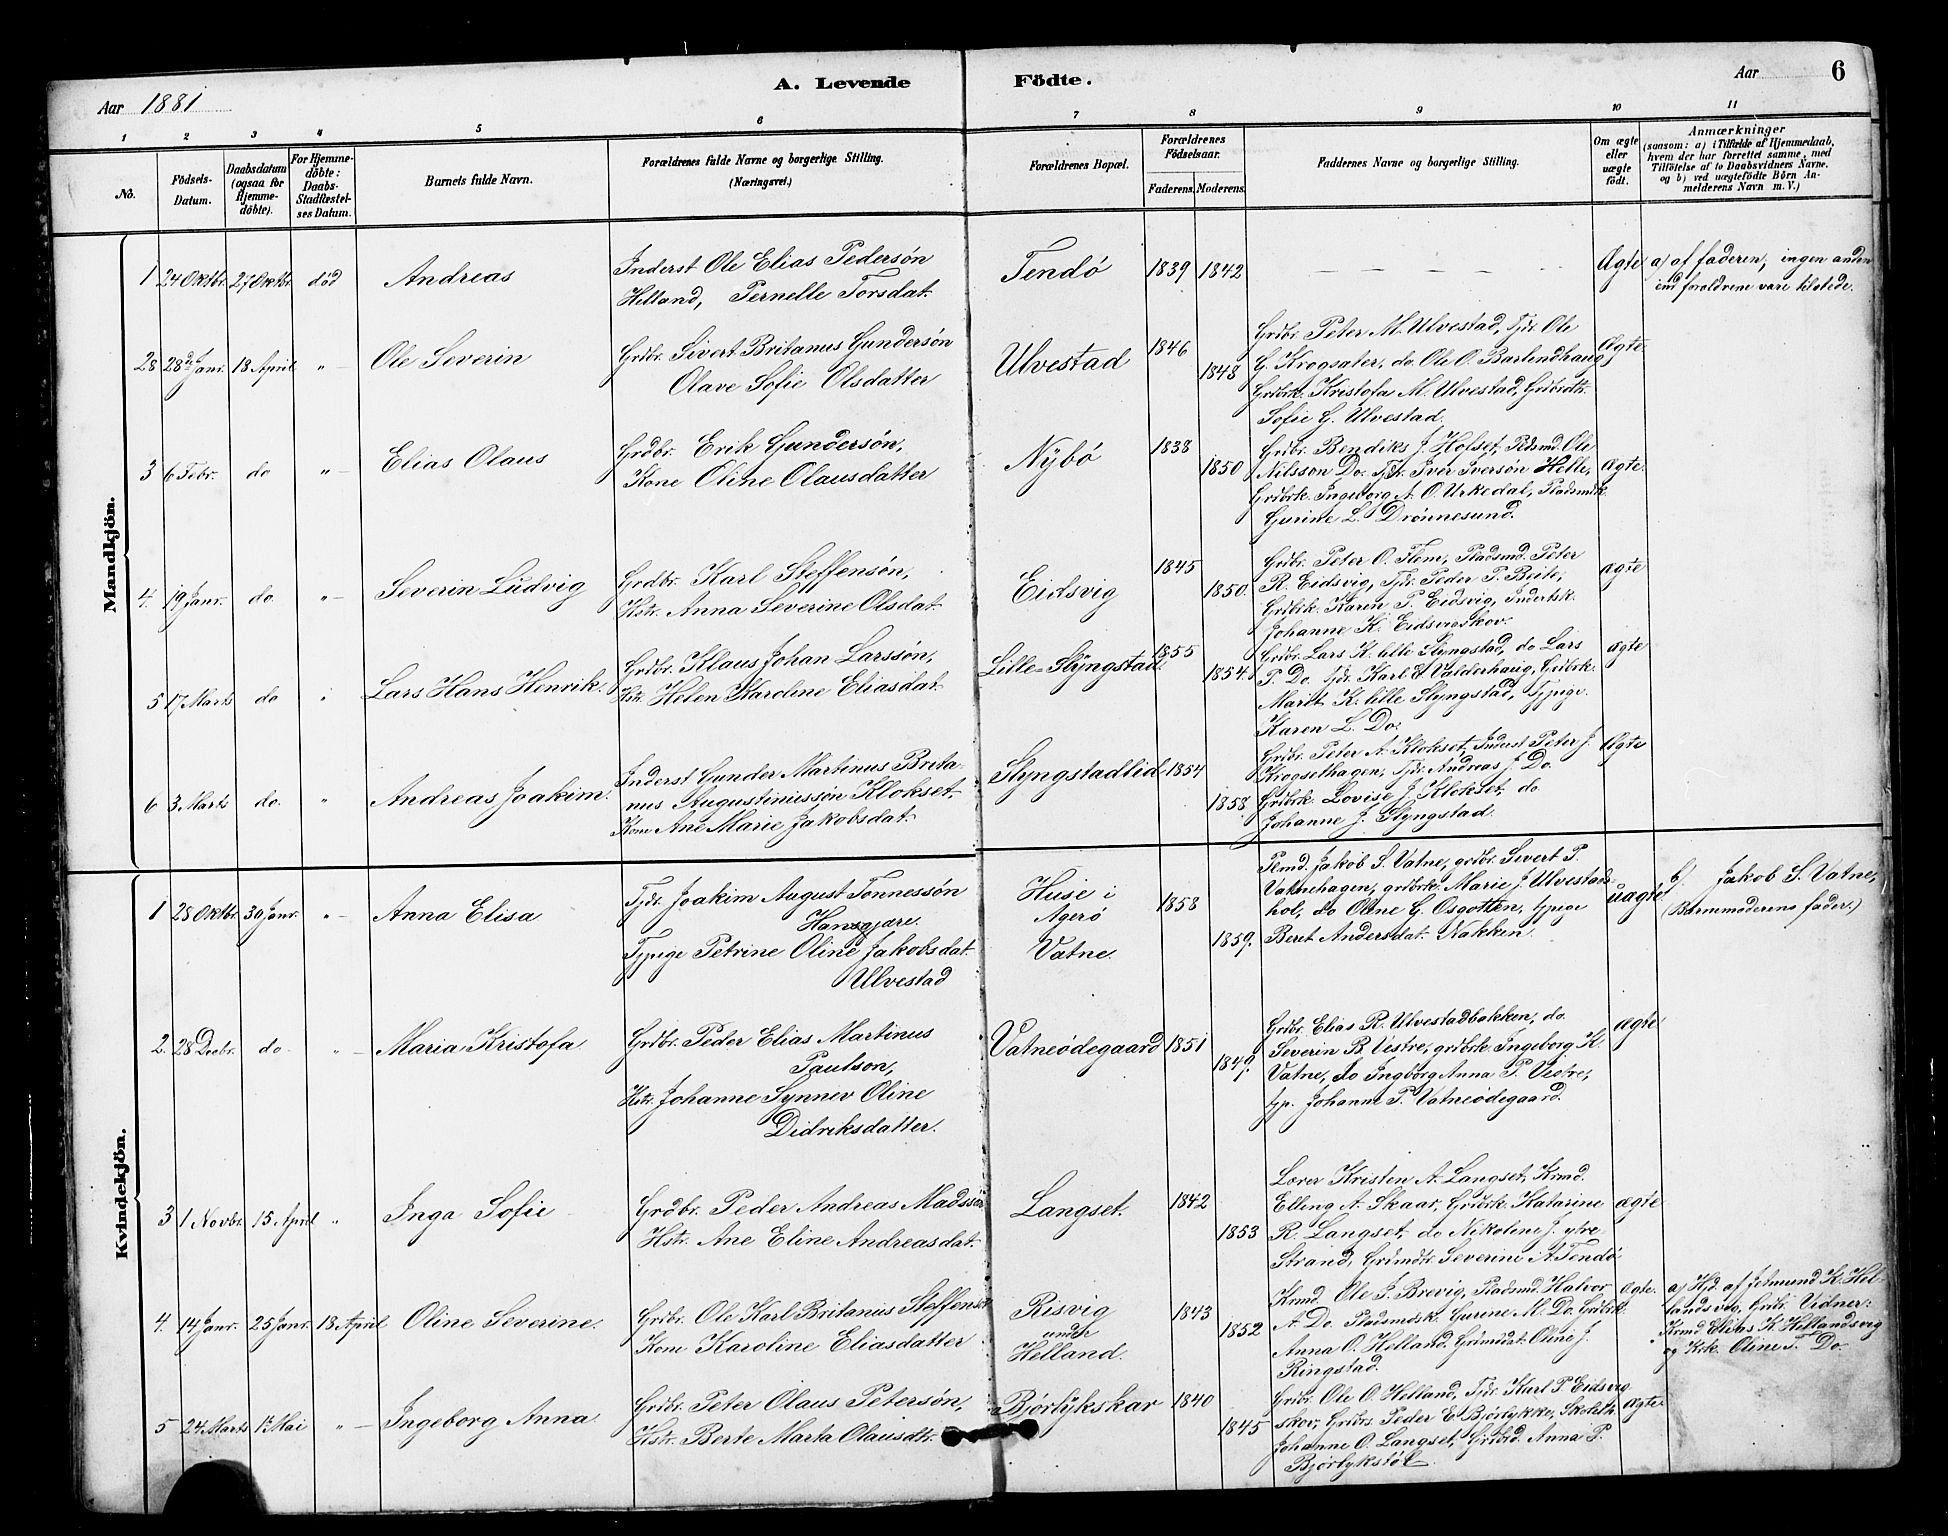 Aar 1881
A. Levende
Födte.
Aar
6
1 2 3 4 5 6 7 8 9 10 11
No.
Födsels-Datum.
Daabsdatum (ogsaa for Hjemme-döbte).
For Hjemme-döbte: Daabs-Stadfæstel-ses Datum.
Barnets fulde Navn.
Forældrenes fulde Navne og borgerlige Stilling. (Næringsvei.)
Forældrenes Bopæl.
Forældrenes Födselsaar.
Faderens. Moderens.
Faddernes Navne og borgerlige Stilling.
Om ægte eller uægte födt.
Anmærkninger
(saasom: a) i Tilfælde af Hjemmedaab,
hvem der har forrettet samme, med
Tilföielse af to Daabsvidners Navne.
og b) ved uægtefödte Börn An-
melderens Navn m. V.)
Mandkjön.
1 24 Oktbr. 27 Oktbr. död
Andreas
Inderst Ole Elias Pedersön
Helland, Pernelle Torsdat.
Tendö
1839 1842
Ægte
a) af faderen, ingen anden
end forældrene vare tilstede.
28 28de Janr. 18 April "
Ole Severin
Grdbr. Sivert Britanus Gundersön
Olave Sofie Olsdatter
Ulvestad
1846
1848
Grdbr. Peter M. Ulvestad, Tjdr. Ole
G. Krogsæter, do. Ole O. Barlindhaug
Grdbrk. Kristofa M. Ulvestad, Grdbrdtr.
Sofie G. Ulvestad.
Ægte
3 6 Febr. do "
Elias Olaus
Grdbr. Erik Gundersön,
Kone Oline Olausdatter
Nybö
1838
1850
Grdbr. Bendiks J. Hofset, Pldsmd. Ole
Nilsson Do. Tjdr. Iver Iversön Helle,
Grdbrk. Ingeborg A. O. Urkedal, Pladsmdk.
Gurine L. Drönnesund.
ægte.
4. 19 Janr. do. "
Severin Ludvig
Grdbr. Karl Steffensön,
Hstr. Anna Severine Olsdat.
Eidsvig
1845
1850.
Grdbr. Peter O. Flem, Pladsmd. Peter
R. Eidsvig, Tjdr. Peder P. Beite,
Grdbrk. Karen P. Eidsvig, Indertsk.
Johanne K. Eidsvigskov.
ægte
5 17 Marts do
Lars Hans Henrik.
Grdbr. Klaus Johan Larssön,
Hstr. Helen Karoline Eliasdat.
Lille-Slyngstad
1855
1854.
Grdbr. Lars K. lille Slyngstad, do Lars
P. Do. Tjdr. Karl E. Valderhaug, Grdbrk.
Marit K. lille Slyngstad, Tjpige.
Karen L. Do.
ægte
6 3 Marts do. "
Andreas Joakim.
Inderst Gunder Martinus Brita-
nus Augustinussön Klokset,
Kone Ane Marie Jakobsdat.
Slyngstadlid
1854
1858.
Grdbr. Peter A. Klokset, Inderst Peter J.
Krogsethagen, Tjdr. Andreas J. Do.
Grdbrk. Lovise J. Klokset, do.
Johanne J. Slyngstad.
Ægte
Kvindekjön.
1 28 Oktbr. 30 Janr. "
Anna Elisa
Tjdr. Joakim August Tonnessön
Hansgjære.
Tjpige Petrine Oline Jakobsdat.
Ulvestad
Huse i
Agerö
Vatne.
1858
1859.
Psmd. Jakob S. Vatne, grdbr. Sivert P.
Vatnehagen, grdbrk. Marie J. Ulvestads-
hol, do Oline G. Osgotten, tjpige
Beret Andersdat. Nakken.
uægte.
b) Jakob S. Vatne,
(Barnemoderens fader.)
2. 28 Decbr. do "
Maria Kristofa
Grdbr. Peder Elias Martinus
Paulson,
Hstr. Johanne Synnev Oline
Didriksdatter.
Vatneödegaard
1851
1849.
Grdbr. Elias R. Ulvestadbakken, do.
Severin B. Vestre, grdbrk. Ingeborg K.
Vatne, do Ingborg Anna P. Vestre,
tjp. Johanne P. Vatneödegaard.
ægte
3 1 Novbr. 15 April "
Inga Sofie
Grdbr. Peder Andreas Madssön
Hstr. Ane Eline Andreasdat.
Langset.
1842
1853
Lærer Kristen A. Langset, Krmd.
Elling A. Skaar, Grdbrk. Katarine
R. Langset, do Nikoline J. ytre
Strand, Grdmdtr. Severine A. Tendö
ægte
4. 14 Janr. 25 Janr. 18 April
Oline Severine.
Grdbr. Ole Karl Britanus Steffens.
Kone Karoline Eliasdatter
Risvig
under
Helland.
1843
1852
Krmd. Ole J. Brevig, Pladsmd. Halvor
A. Do. Pladsmdsk. Gurine M. Do. Grdbrk.
Anna O. Helland. Grdmdat. Oline J.
Ringstad.
Ægte.
a) Hjd. af Jetmund K. Hel-
landsvig, Grdbr. Vidner:
Krmd. Elias K. Hellandsvig
og Krk. Oline T. Do.
5 24 Marts 1 Mai "
Ingeborg Anna
Grdbr. Peter Olaus Petersön,
Hstr. Berte Marta Olausdtr.
Björlykskar
1840
1845
Grdbr. Ole O. Helland, Tjdr. Karl P. Eidsvig
skov, Grdbrs. Peder E. Björlykke, Skoleth.
Johanne O. Langset, Grdbrd. Anna P.
Björlykstöl.
Ægte.